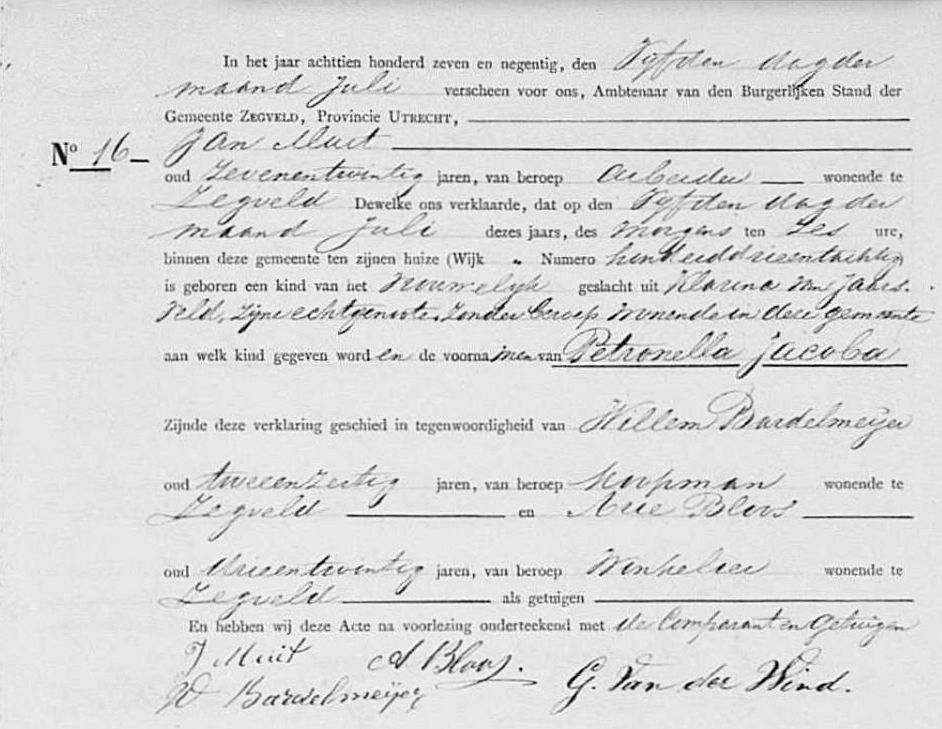 In het jaar achttien honderd zeven en negentig, den Vyfden dag der
maand Juli verscheen voor ons, Ambtenaar van den Burgerlijken Stand der
Gemeente ZEGVELD, Provincie UTRECHT,
No 16 Jan Muit
oud Zevenentwintig jaren, van beroep Arbeider wonende te
Zegveld Dewelke ons verklaarde, dat op den Vyfden dag der
maand Juli dezes jaars, des Morgens ten Zes ure,
binnen deze gemeente ten zijnen huize (Wijk „ Numero honderddrieentachtig
is geboren een kind van het Vrouwelyk geslacht uit Klasina van Jaars-
veld, Zyne echtgenoote, Zonder beroep Wonende in deze gemeente
aan welk kind gegeven word en de voorna men van Petronella Jacoba
Zijnde deze verklaring geschied in tegenwoordigheid van Willem Bardelmeyer
oud tweeenzestig jaren, van beroep Koopman wonende te
Zegveld en Arie Bloos
oud drieentwintig jaren, van beroep Winkelier wonende te
Zegveld als getuigen
En hebben wij deze Acte na voorlezing onderteekend met de Comparant en Getuigen
J Muit A. Bloos.
W Bardelmeijer G. Van der Wind.